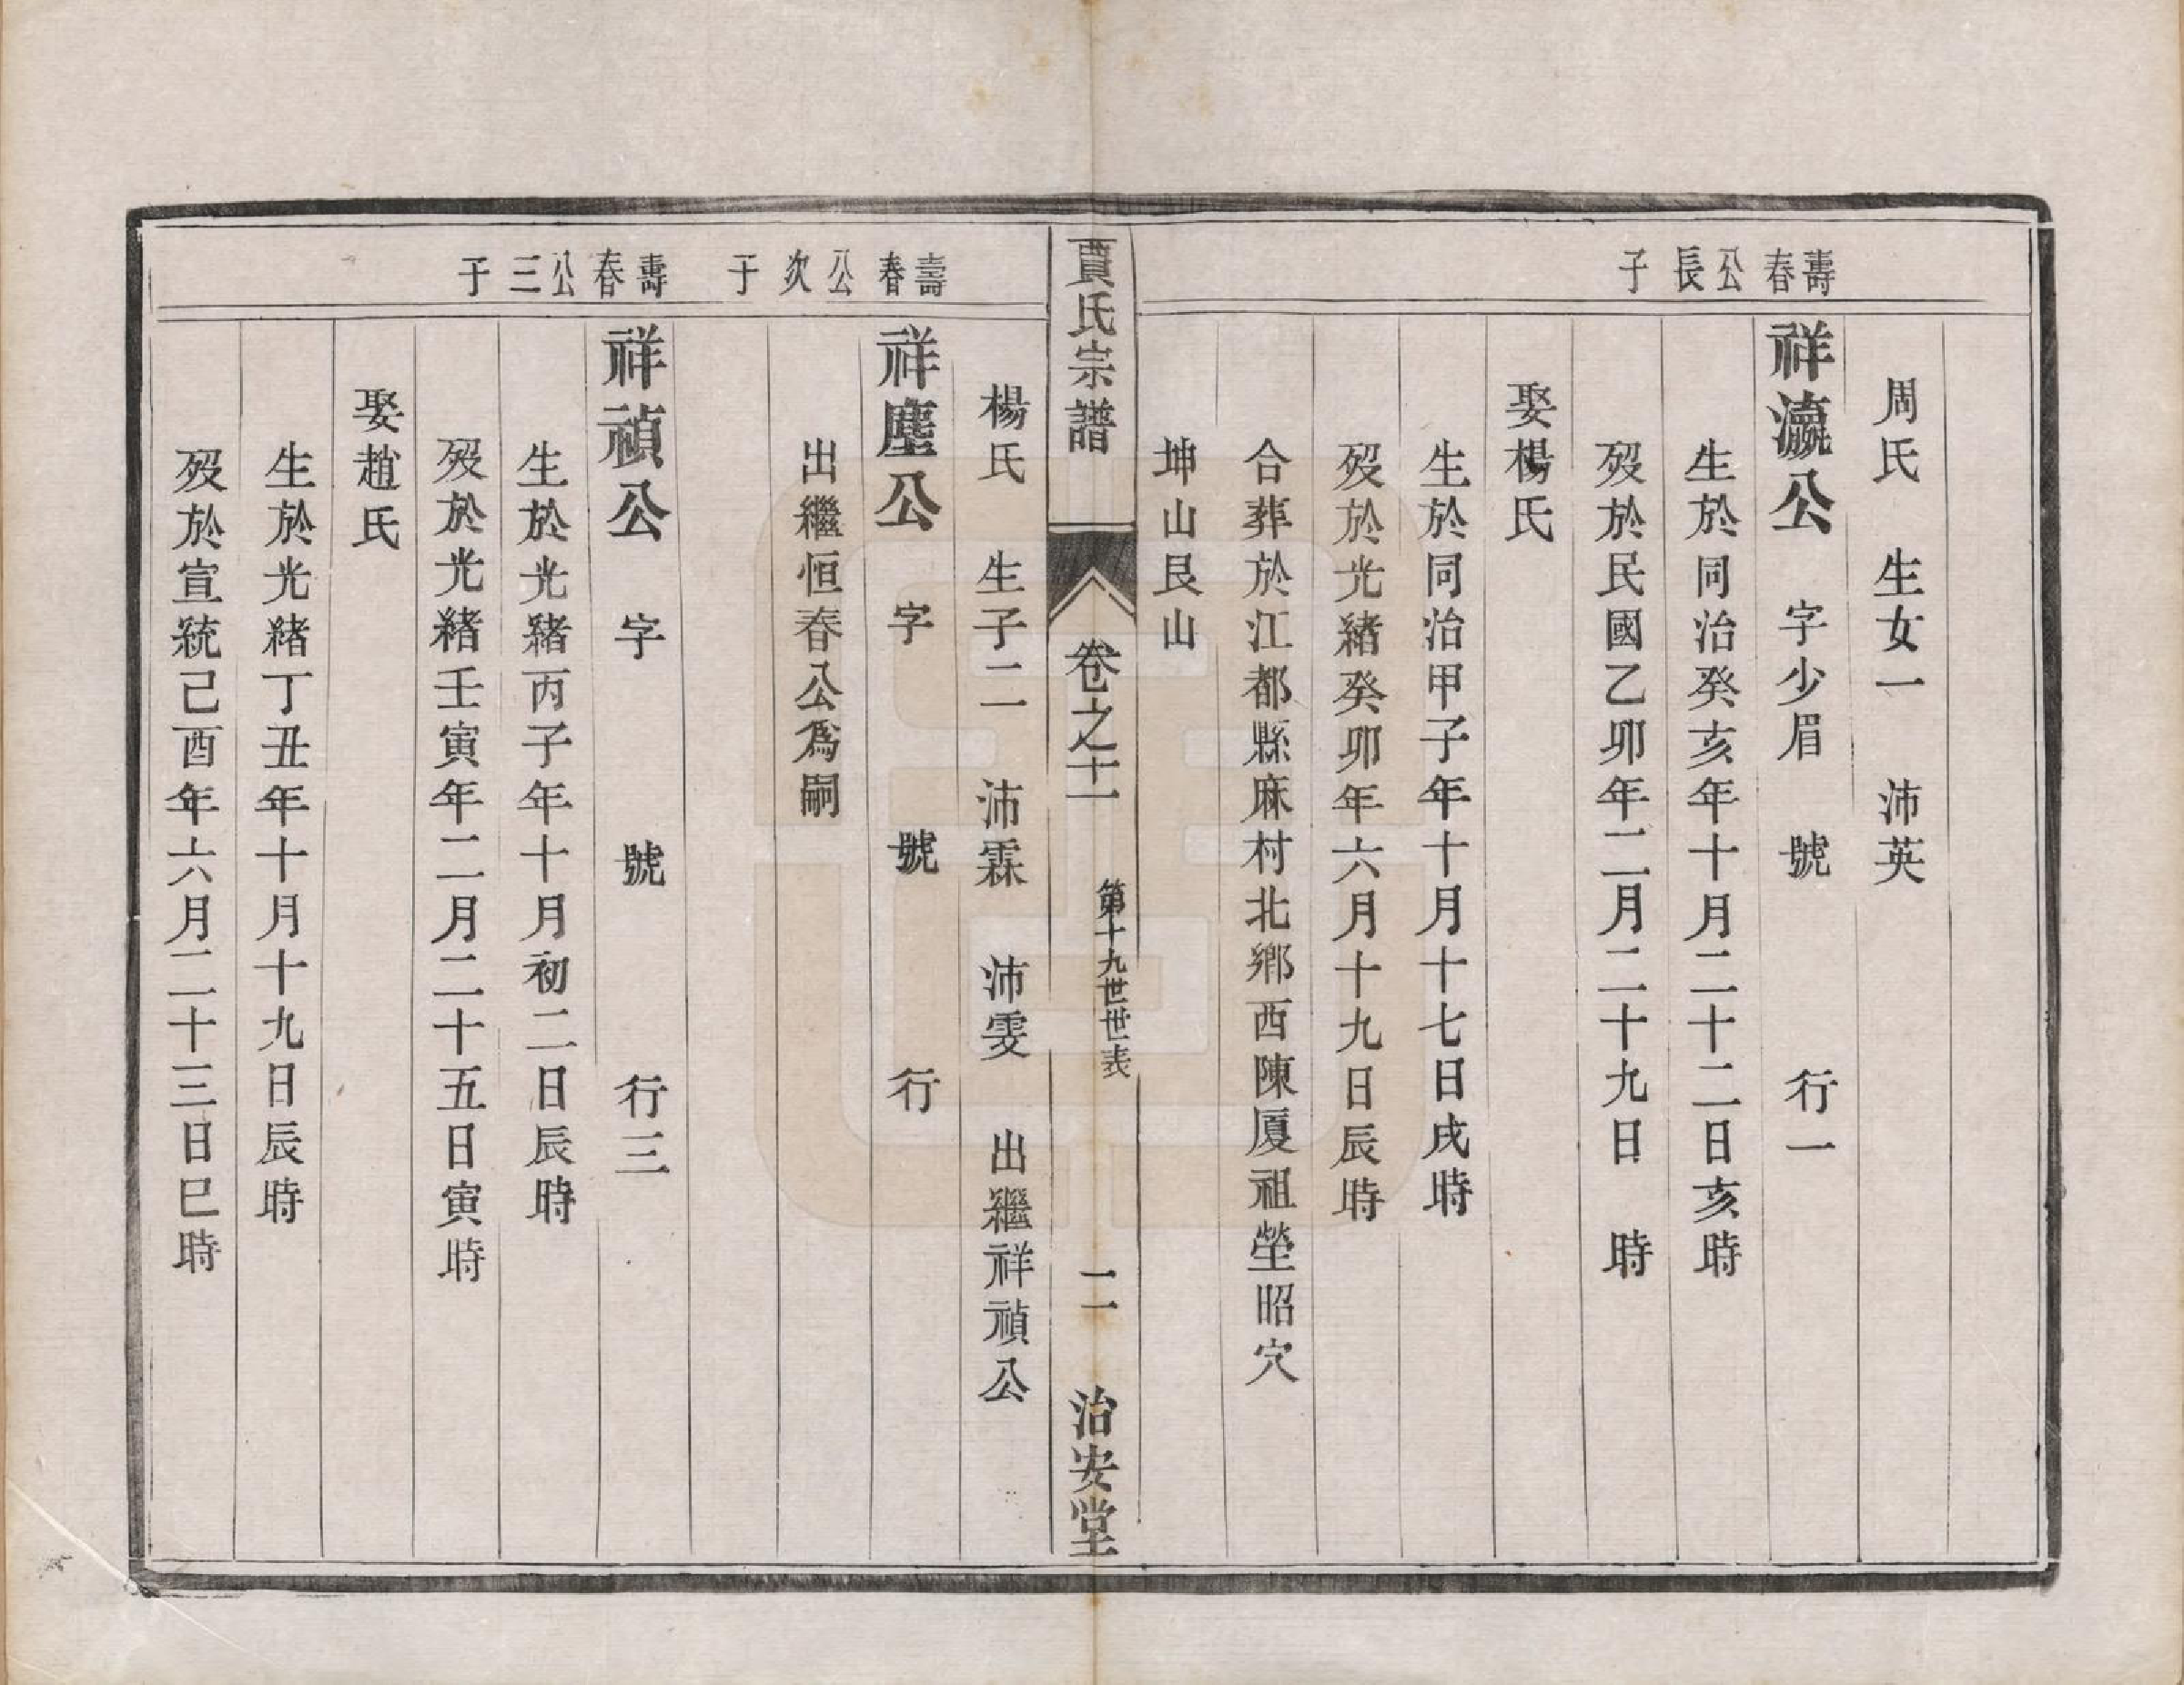 周氏　生女一　沛英
壽春公長子
祥瀛公　字少眉　號　行一
生於同治癸亥年十月二十二日亥時
歿於民國乙卯年二月二十九日　時
娶楊氏
生於同治甲子年十月十七日戌時
歿於光緒癸卯年六月十九日辰時
合葬於江都縣麻村北鄉西陳厦祖塋昭穴
坤山艮山
賈氏宗譜　卷之十一　第十九世世表　二　治安堂
楊氏　生子二　沛霖　沛雯　出繼祥禎公
壽春公次子
祥塵公　字　號　行
出繼恒春公爲嗣
壽春公三子
祥禎公　字　號　行三
生於光緒丙子年十月初二日辰時
歿於光緒壬寅年二月二十五日寅時
娶趙氏
生於光緒丁丑年十月十九日辰時
歿於宣統己酉年六月二十三日巳時